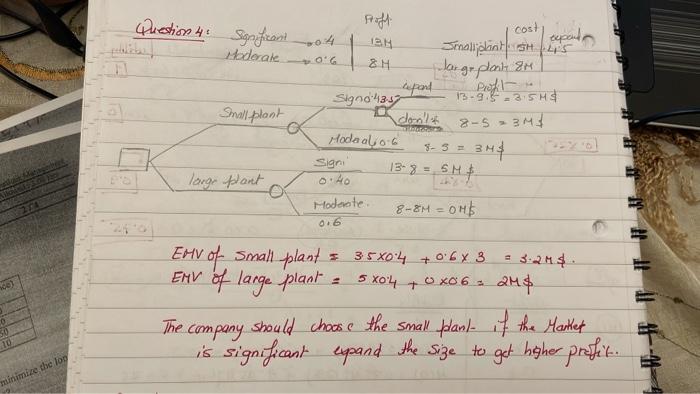 Question 4:
Significant → 0.4
Moderate → 0.6
Profit
13M
8M
cost expand
Small plant 5M 4.5
large plant 8M
Profit
Small plant
Signi
expand
13-9.5 = 3.5M$
don't
8-5 = 3M$
0.6
8-5 = 3M$
large plant
Signi
0.40
13-8 = 5M$
Moderate.
0.6
8-8M = 0M$
EMV of small plant = 3.5x0.4 + 0.6 x 3 = 3.2M$.
EMV of large plant = 5x0.4 + 0x0.6 = 2M$
The company should choose the small plant if the Market
is significant expand the size to get higher profit.
minimize the